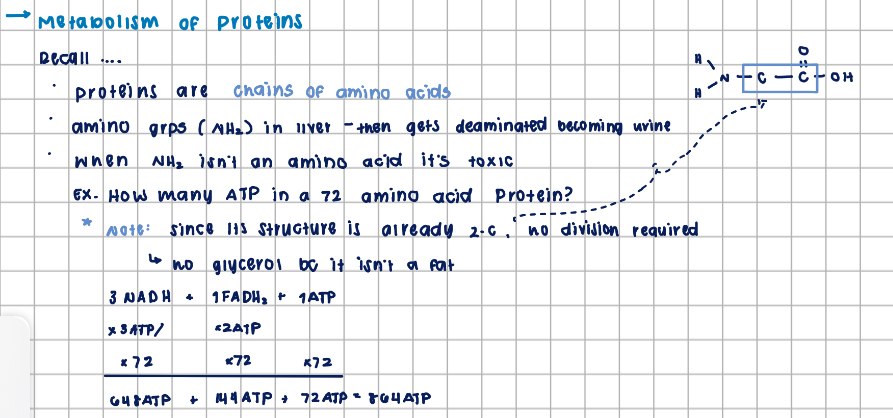 → Metabolism of Proteins
Recall ....
· proteins are chains of amino acids
· amino grps (NH₂) in liver - then gets deaminated becoming urine
· when NH₂ isn't an amino acid it's toxic
EX. How many ATP in a 72 amino acid Protein?
* Note: since its structure is already 2-C, no division required
↳ no glycerol bc it isn't a fat
3 NADH + 1FADH₂ + 1ATP
x3ATP/ x2ATP
x72 x72 x72
648ATP + 144ATP + 72ATP = 864ATP
O
H
N - C - C - OH
H